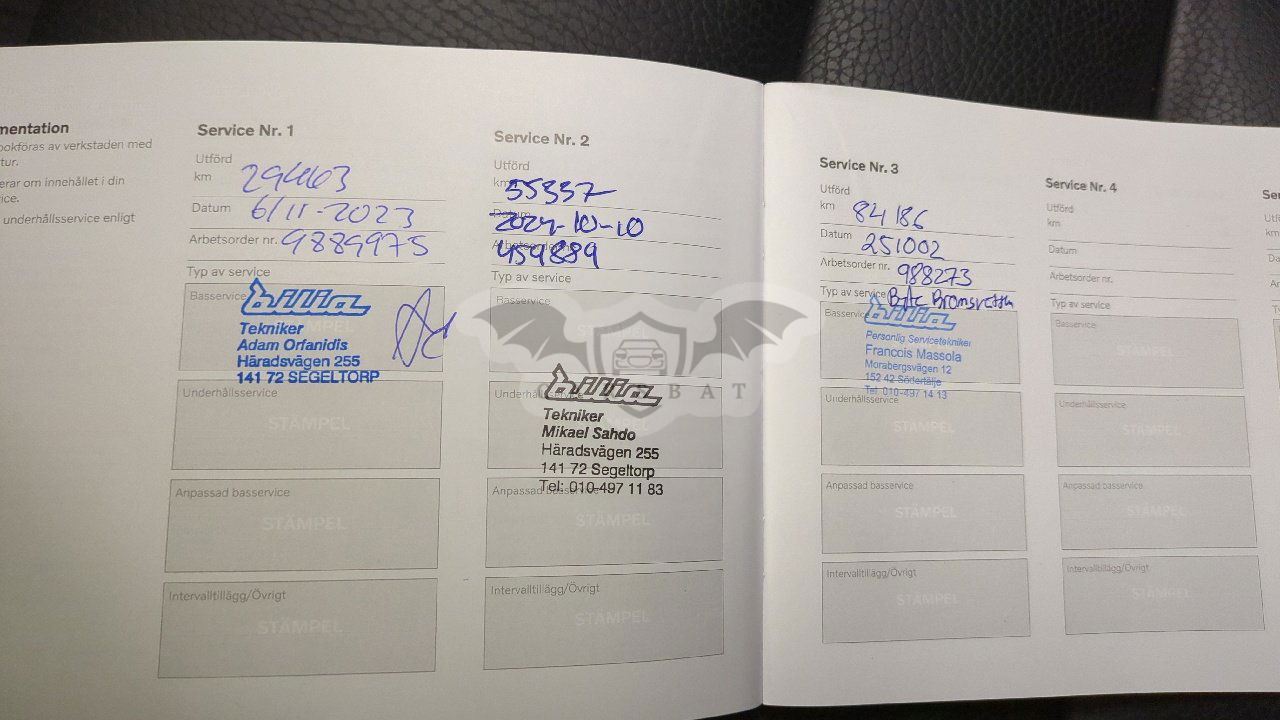 mentation
bokföras av verkstaden med
tur.
erar om innehållet i din
ice.
underhållsservice enligt
Service Nr. 1
Utförd
km 29463
Datum 6/11-2023
Arbetsorder nr. 9889975
Typ av service
Basservice
bilia
Tekniker
Adam Orfanidis
Häradsvägen 255
141 72 SEGELTORP
STÄMPEL
Underhållsservice
STÄMPEL
Anpassad basservice
STÄMPEL
Intervalltillägg/Övrigt
STÄMPEL
Service Nr. 2
Utförd
km 55357
Datum 2024-10-10
459889
Typ av service
Basservice
Underhållsservice
bilia
Tekniker
Mikael Sahdo
Häradsvägen 255
141 72 Segeltorp
Tel: 010-497 11 83
Anpassad basservice
STÄMPEL
Intervalltillägg/Övrigt
STÄMPEL
BAT
Service Nr. 3
Utförd
km 84186
Datum 251002
Arbetsorder nr. 988273
Typ av service Byte
Basservice
bilia
Personlig Servicetekniker
Francois Massola
Morabergsvägen 12
152 42 Södertälje
Tel: 010-497 14 13
Underhållsservice
STÄMPEL
Anpassad basservice
STÄMPEL
Intervalltillägg/Övrigt
STÄMPEL
Service Nr. 4
Utförd
km
Datum
Arbetsorder nr.
Typ av service
Basservice
STÄMPEL
Underhållsservice
STÄMPEL
Anpassad basservice
STÄMPEL
Intervalltillägg/Övrigt
STÄMPEL
Se
Utf
km
Dat
Arb
Typ